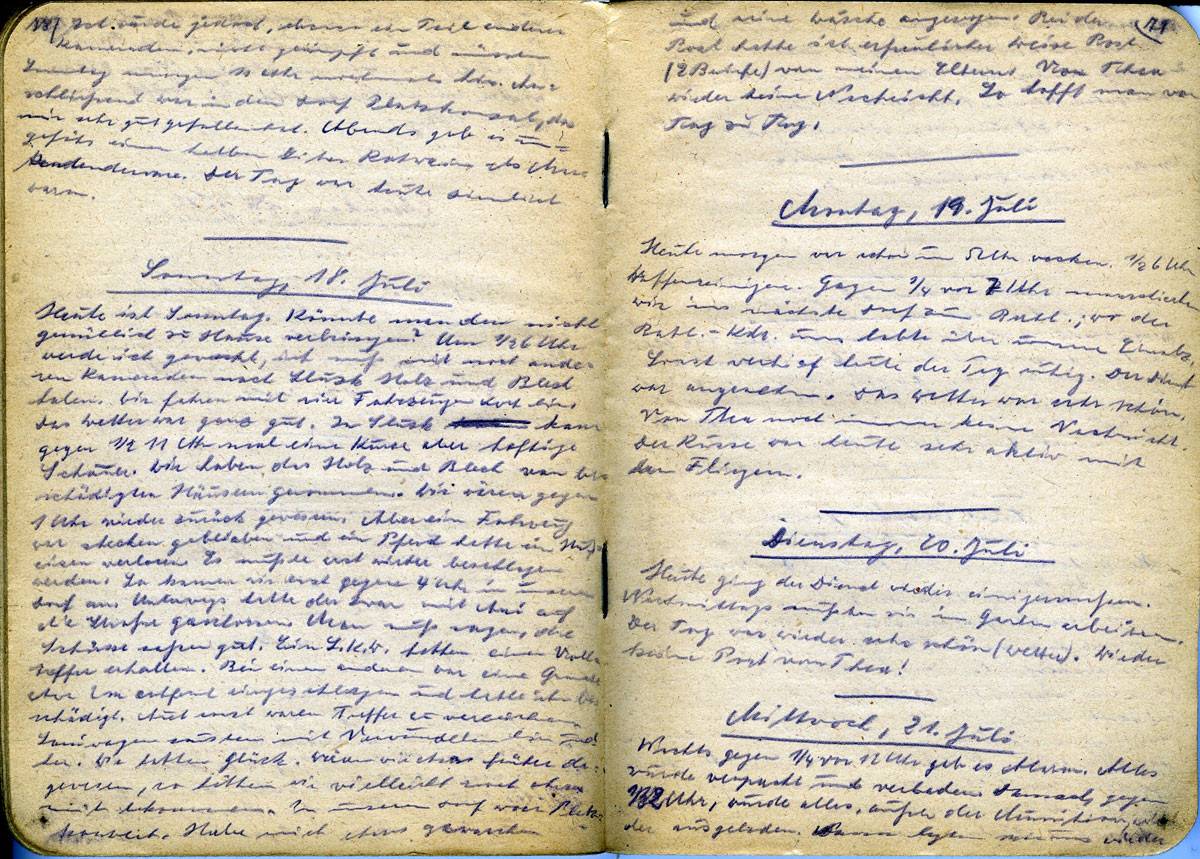 Ich wurde jedoch, ebenso ein Teil anderer
Kameraden, nicht geimpft und müssen
Sonntag morgen Uhr nochmals hin. An-
schließend war in dem Dorf Platzkonzert, das
mir sehr gut gefallen hat. Abends gab es un-
gefähr einen halben Liter Rotwein als Mar-
ketenderware. Der Tag war heute ziemlich
warm.
Sonntag, 18. Juli
Heute ist Sonntag. Könnte man den nicht
gemütlich zu Hause verbringen? Um 1/26 Uhr
werde ich geweckt, ich muß mit noch ande-
ren Kameraden nach Holz und Blech
holen. Wir fahren mit vier Fahrzeugen dort hin.
Das Wetter war ganz gut. In kam
gegen 1/2 11 Uhr mal eine kurze aber heftige
Schauer. Wir haben das Holz und Blech von be-
schädigten Häusern genommen. Wir wären gegen
1 Uhr wieder zurück gewesen. Aber ein Fahrzeug
war stecken geblieben und ein Pferd hatte ein Huf-
eisen verloren. Es mußte erst wieder beschlagen
werden. So kamen wir erst gegen 4 Uhr in unserem
Dorf an. Unterwegs hatte der Iwan mit Ari auf
die Straße geschossen. Man muß sagen, die
Schüsse saßen gut. Ein L.K.W. hatten einen Voll-
treffer erhalten. Bei einem anderen war eine Granate
etwa 2 m entfernt eingeschlagen und hatte ihn be-
schädigt. Auch sonst waren Treffer zu verzeichnen.
Sanwagen sausten mit Verwundeten hin und
her. Wir hatten Glück. Wären wir etwas früher da-
gewesen, so hätten wir vielleicht auch etwas
mit bekommen. In unserem Dorf war
Habe mich etwas gewaschen
71
und reine Wäsche angezogen. Bei der
Post hatte ich erfreulicher Weise Post
(2 Briefe) von meinen Eltern. Von Thea
wieder keine Nachricht. So hofft man von
Tag zu Tag.
Montag, 19. Juli
Heute morgen war schon um 5 Uhr wecken. 1/26 Uhr
Waffenreinigen. Gegen 3/4 vor 7 Uhr marschierten
wir ins nächste Dorf zum Batl., wo der
Batl.-Kdr. uns hatte über unseren Einsatz.
Sonst verlief heute der Tag ruhig. Der Dienst
war angenehm. Das Wetter war sehr schön.
Von Thea noch immer keine Nachricht.
Der Russe war heute sehr aktiv mit
den Fliegern.
Dienstag, 20. Juli
Heute ging der Dienst wieder einigermaßen.
Nachmittags mußten wir im Garten arbeiten.
Der Tag war wieder sehr schön (Wetter). Wieder
keine Post von Thea!
Mittwoch, 21. Juli
Nachts gegen 1/4 vor 12 Uhr gab es Alarm. Alles
wurde verpackt und verladen. Damals, gegen
1/2 2 Uhr, wurde alles, außer der Munition, wie-
der ausgeladen. legten wir uns wieder